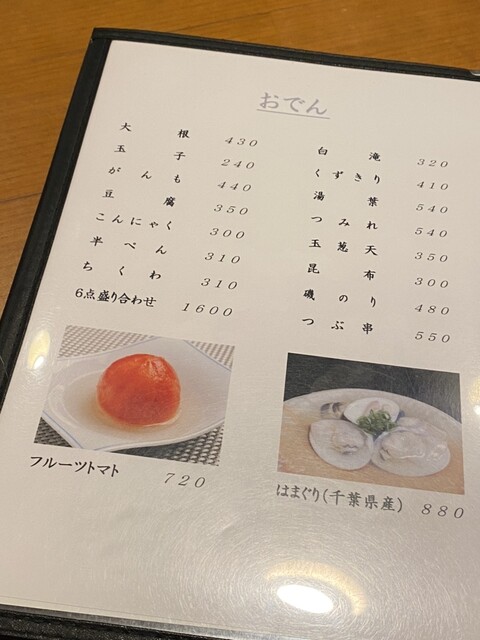 おでん
大根 430
玉子 240
がんも 440
豆腐 350
こんにゃく 300
半ぺん 310
ちくわ 310
6点盛り合わせ 1600
白滝 320
くずきり 410
湯葉 540
つみれ 540
玉葱天 350
昆布 300
磯のり 480
つぶ串 550
フルーツトマト 720
はまぐり(千葉県産) 880